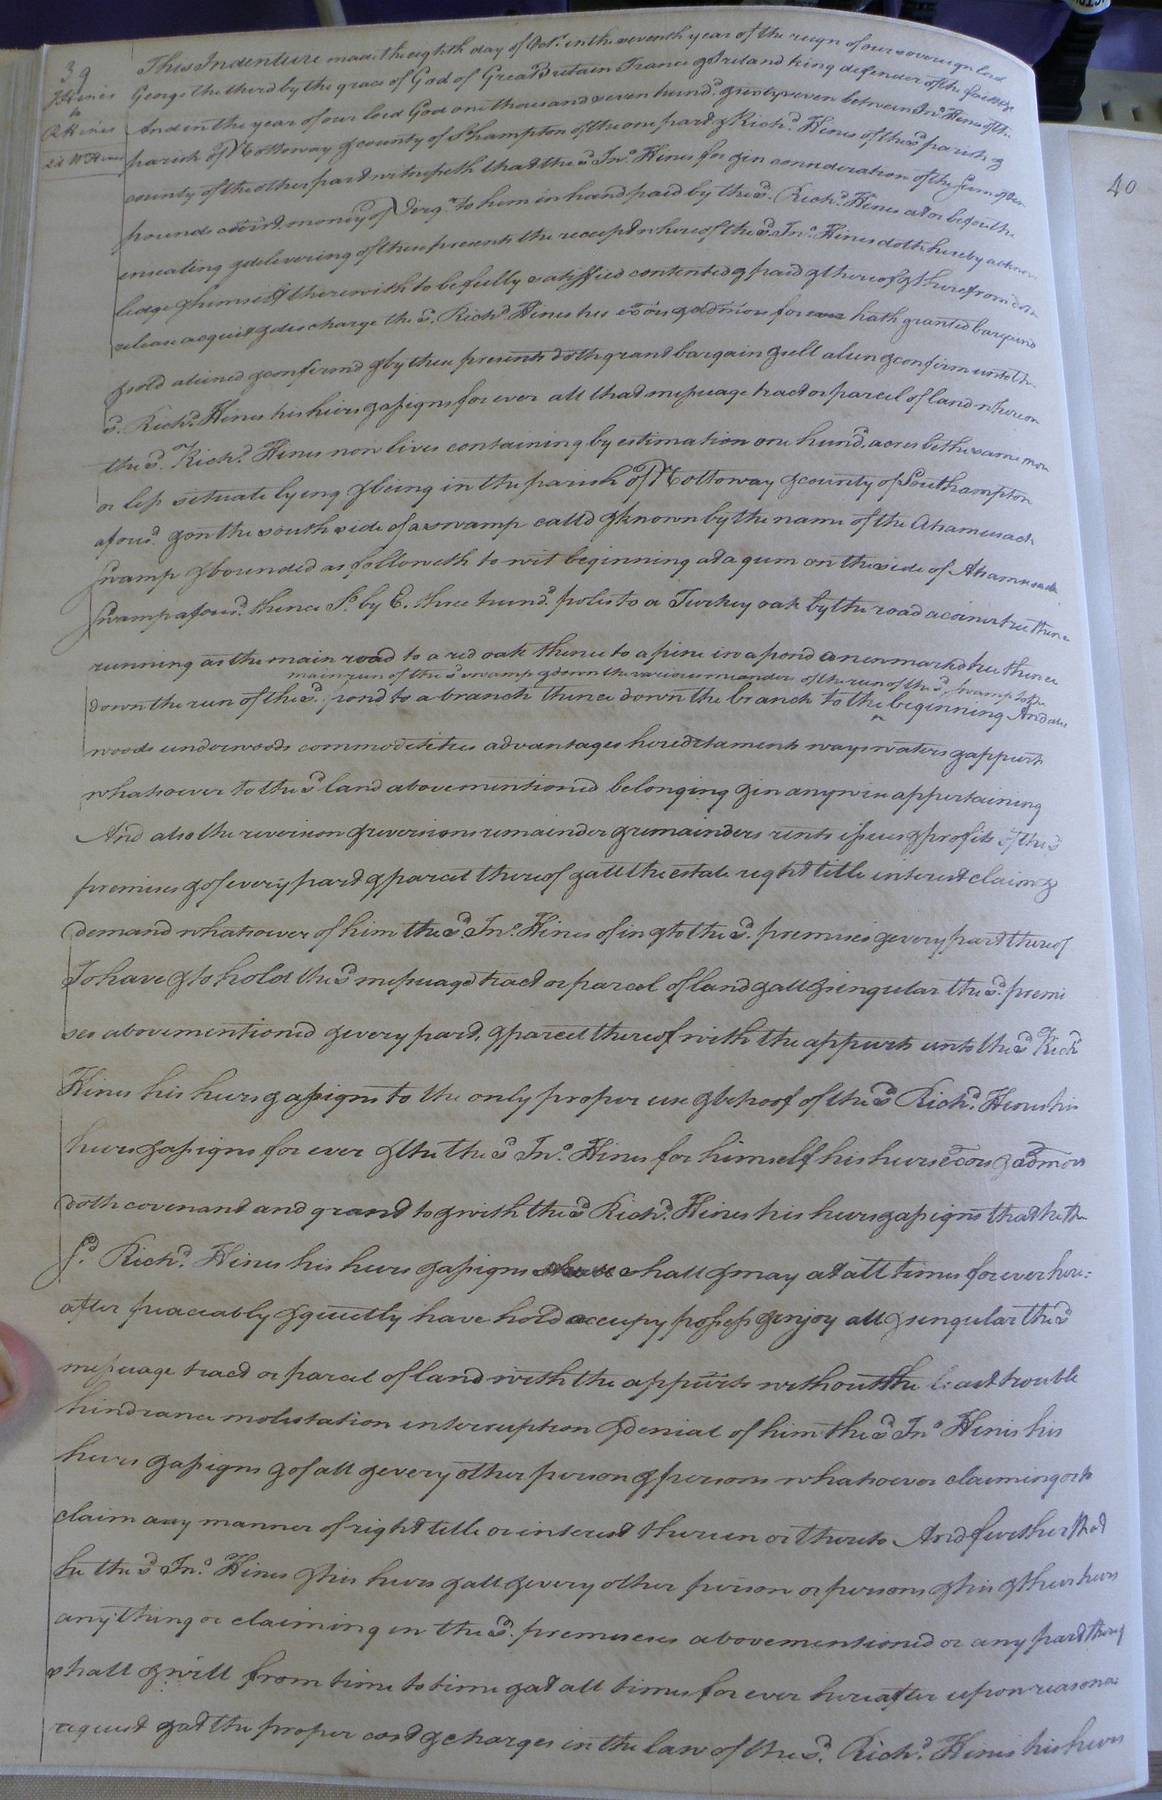 39
J Hines
to
R Hines
Dd W Hines
This Indenture made the eighth day of Octr. in the seventh year of the reign of our sovereign lord
George the therd by the grace of God of Great Britain France & Ireland king defender of the faith &c
And in the year of our lord God one thousand seven hund. & sixty seven between Jno. Hines of the
parish of Nottoway & county of S.hampton of the one part & Richd. Hines of the sd parish &
county of the other part witnesseth that the sd Jno. Hines for & in consideration of the sum of ten
pounds money of Virga. to him in hand paid by the sd. Richd. Hines at or before the
ensealing & delivering of these presents the receipt whereof the sd. Jno. Hines doth hereby acknow
ledge & himself therewith to be fully satisfied contented & paid & thereof & therefrom doth
release acquit & descharge the sd. Richd. Hines his exors & admors for ever hath granted bargained
& sold aliened & confirmd & by these presents doth grant bargain & sell alien & confirm unto the
sd. Richd. Hines his heirs & assigns for ever all that messuage tract or parcel of land whereon
the sd. Richd. Hines now lives containing by estimation one hund. acres be the same more
or less situate lying & being in the parish of Nottoway & county of Southampton
aforesd & on the south side of a swamp calld & known by the name of the Ahamusack
swamp & bounded as followeth to wit beginning at a gum on the side of Ahamusack
swamp aforesd. thence So. by E. three hund. poles to a Turkey oak by the road a corner tree thence
running as the main road to a red oak thence to a pine in a pond a new markd tree thence
main run of the sd swamp & down the various meanders of the run of the sd. swamp to the
down the run of the sd. pond to a branch thence down the branch to the ^ beginning And also
woods underwoods commoditities advantages hereditaments ways waters & appurts
whatsoever to the sd land abovementioned belonging & in any wise appertaining
And also the reversion & reversions remainder & remainders rents issues & profits of the sd
premises & of every part & parcel thereof & all the estate right title interest claim &
demand whatsoever of him the sd. Jno. Hines of in & to the sd. premises & every part thereof
To have & to hold the sd messuage tract or parcel of land & all & singular the sd. premi
ses abovementioned & every part & parcel thereof with the appurts unto the sd Richd
Hines his heirs & assigns to the only proper use & behoof of the sd Richd. Hines his
heirs & assigns for ever & the the sd Jno. Hines for himself his heirs exors & admors
doth covenant and grant to & with the sd Richd. Hines his heirs & assigns that he the
sd. Richd. Hines his heirs & assigns shall & may at all times forever here=
after peaceably & quietly have hold occupy possess & enjoy all & singular the sd
messuage tract or parcel of land with the appurts without the least trouble
hindrance molestation interruption & denial of him the sd Jno Hines his
heirs & assigns & of all & every other person & persons whatsoever claiming or to
claim any manner of right title or interest therein or thereto And further that
he the sd Jno. Hines & his heirs & all & every other person or persons & his & their heirs
anything or claiming in the sd. premeses abovementioned or any part thereof
shall & will from time to time & at all times for ever hereafter upon reasona
request & at the proper cost & charges in the law of the sd. Richd. Hines his heirs
40